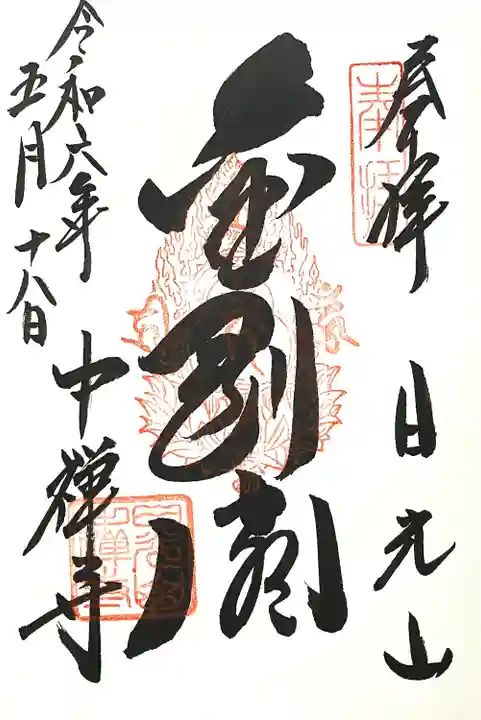 奉拝
日光山
金剛
中禅寺
令和六年
五月十八日